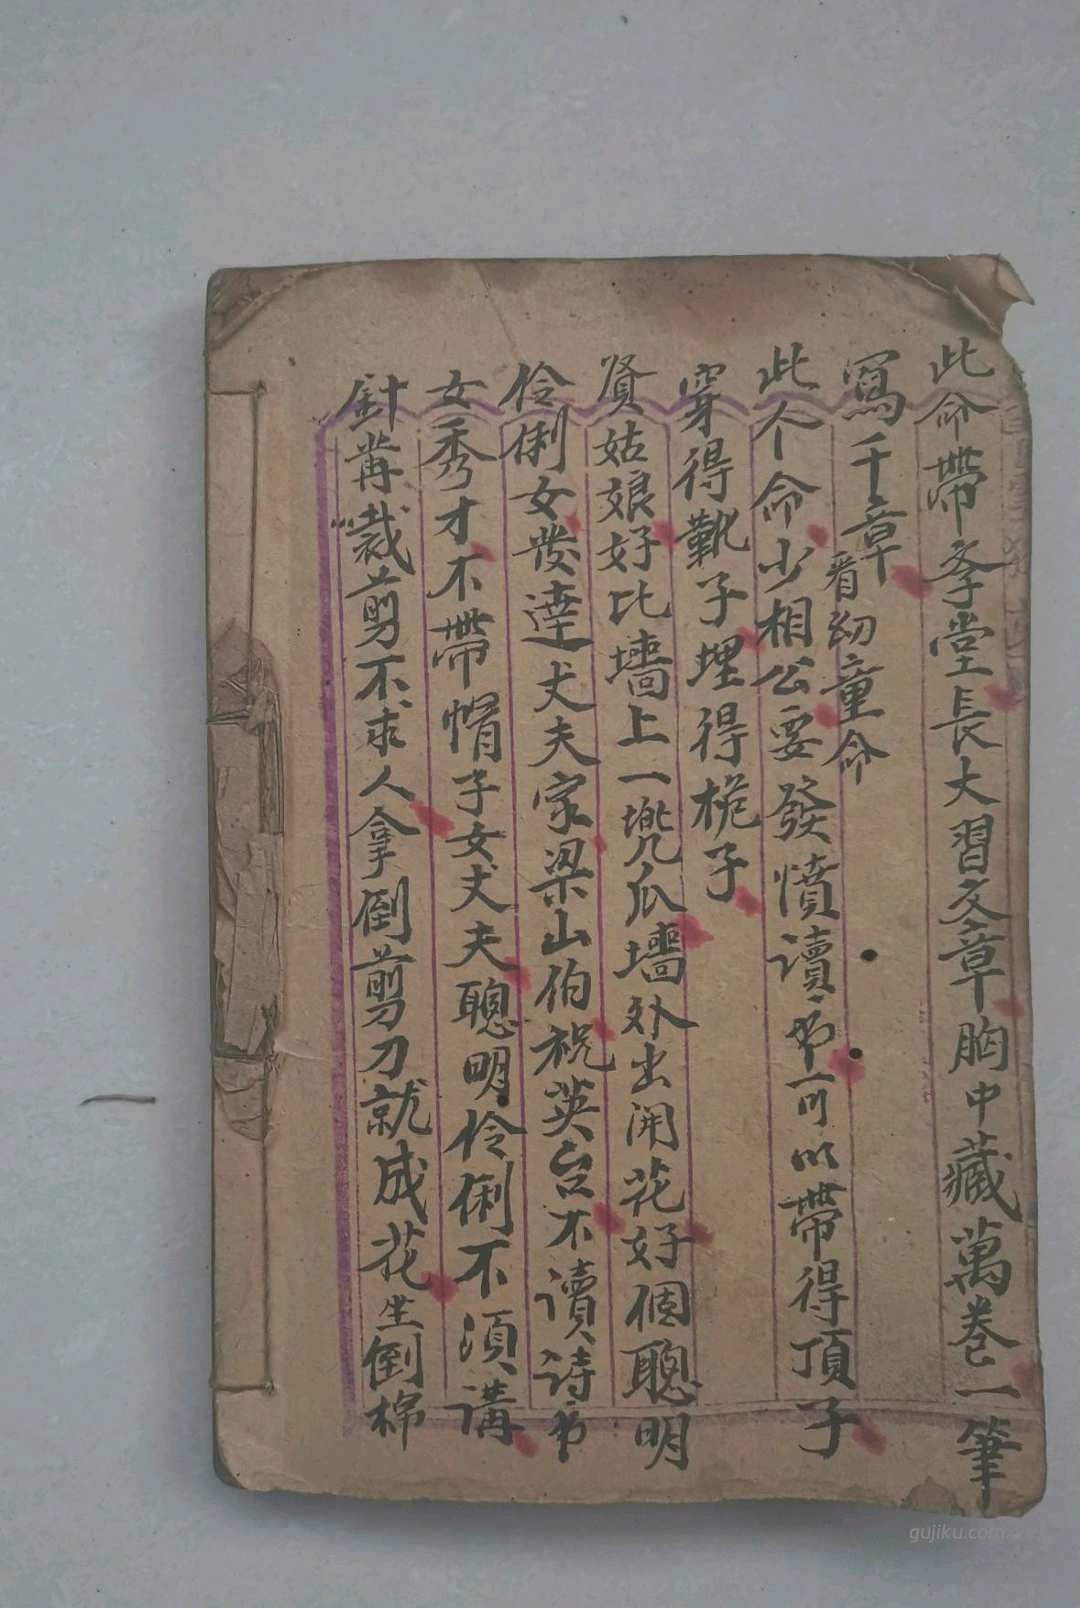 此命帶孝堂長大習文章胸中藏萬卷一筆
寫千章
看幼童命
此个命少相公要發憤讀书可以帶得頂子
穿得靴子埋得桅子
賢姑娘好比墻上一兠瓜墻外出開花好個聰明
伶俐女發達丈夫家梁山伯祝英台不讀詩书
女秀才不帶帽子女丈夫聰明伶俐不須講
針黹裁剪不求人拿倒剪刀就成花生倒棉
gujiku.com